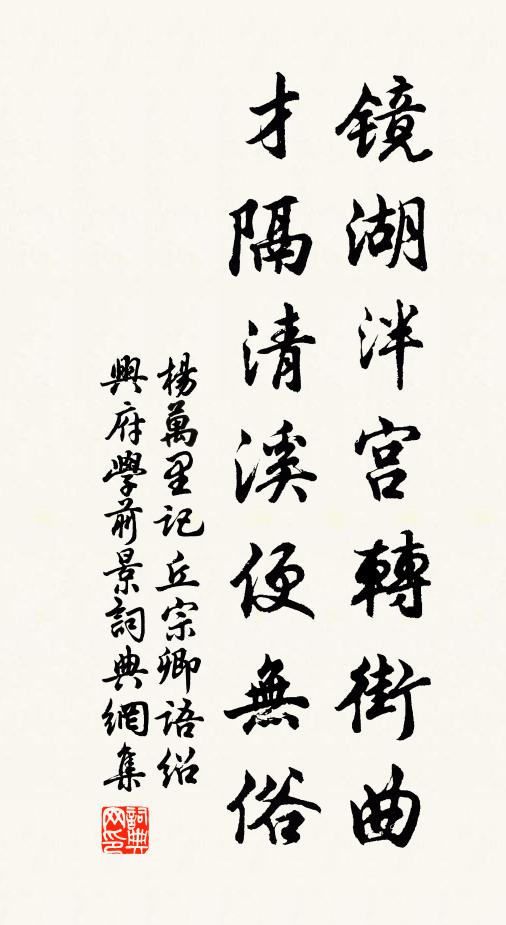 镜湖泮宫轉街曲
才隔清溪便無俗
楊萬里記丘宗卿語绍
興府學前景詞典網集
詞典网印